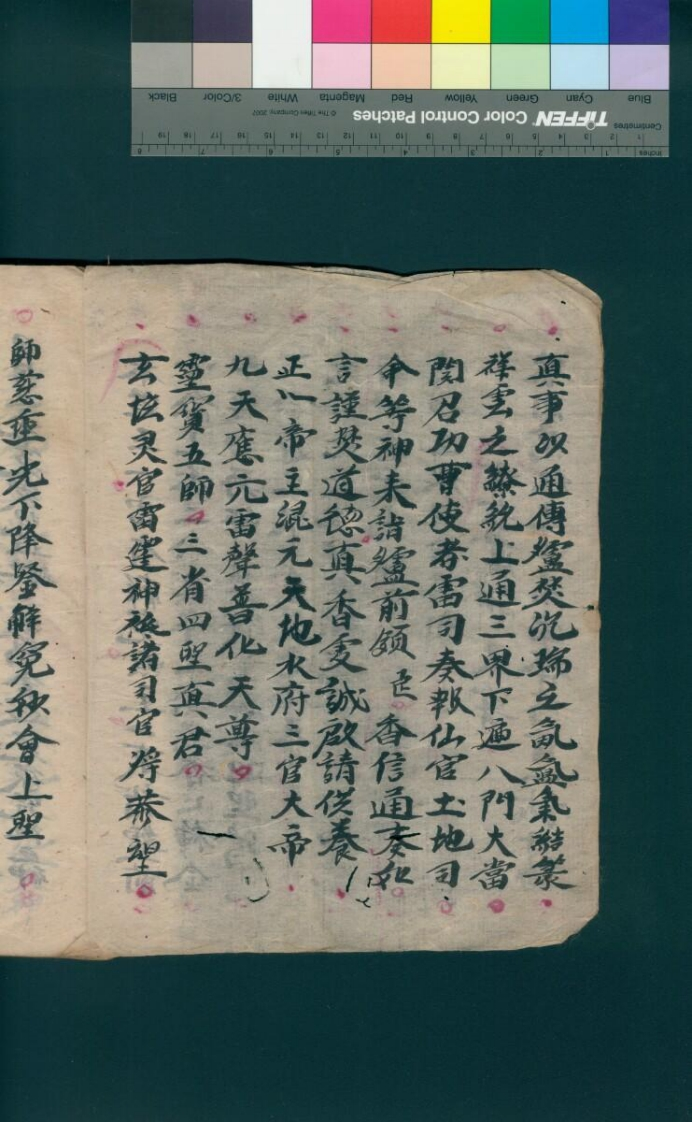 真事以通傳爐焚沉瑞之氤氳氣結篆
祥雲之繚繞上通三界下通八門大當
関召功曹使者雷司奏報仙官土地司
命等神来詣爐前領臣香信通奏
言謹焚道德真香虔誠啟請供養
正一帝主混元天地水府三官大帝
九天應元雷聲普化天尊
靈寶五師三省四聖真君
玄坛灵官雷霆神祇諸司官将恭望
師慈垂光下降登解会上聖
Blue Cyan Green Yellow Red Magenta White 3/Color Black
TIFFEN Color Control Patches © The Tiffen Company, 2007
Centimetres
Inches